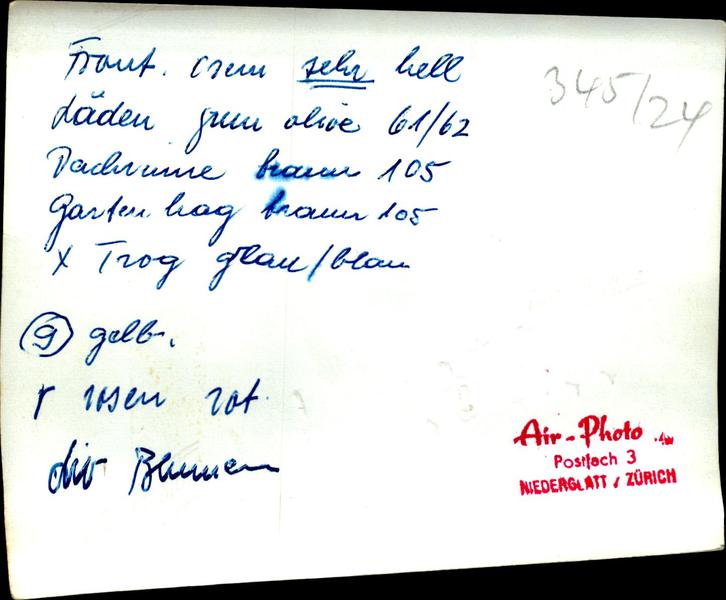 Front. crem sehr hell
345/24
Läden grün olive 61/62
Dachrinne braun 105
Gartenhag braun 105
x Trog grau/blau
g gelb.
r rosen rot.
div Blumen
Air-Photo
Postfach 3
NIEDERGLATT / ZÜRICH